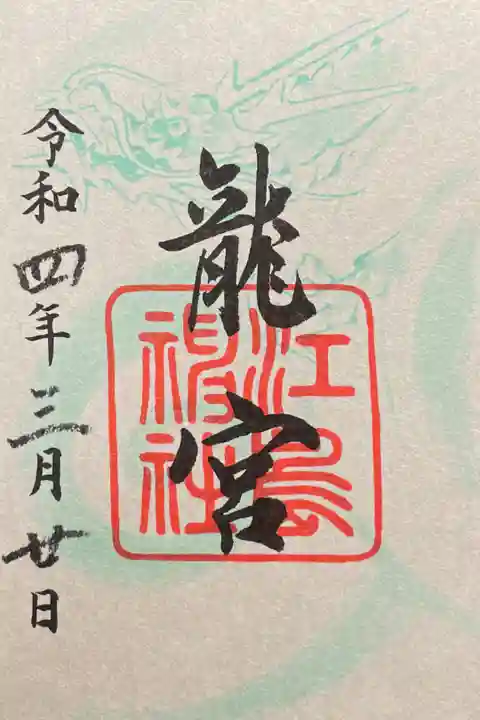 龍宮
江島神社
令和四年三月廿日